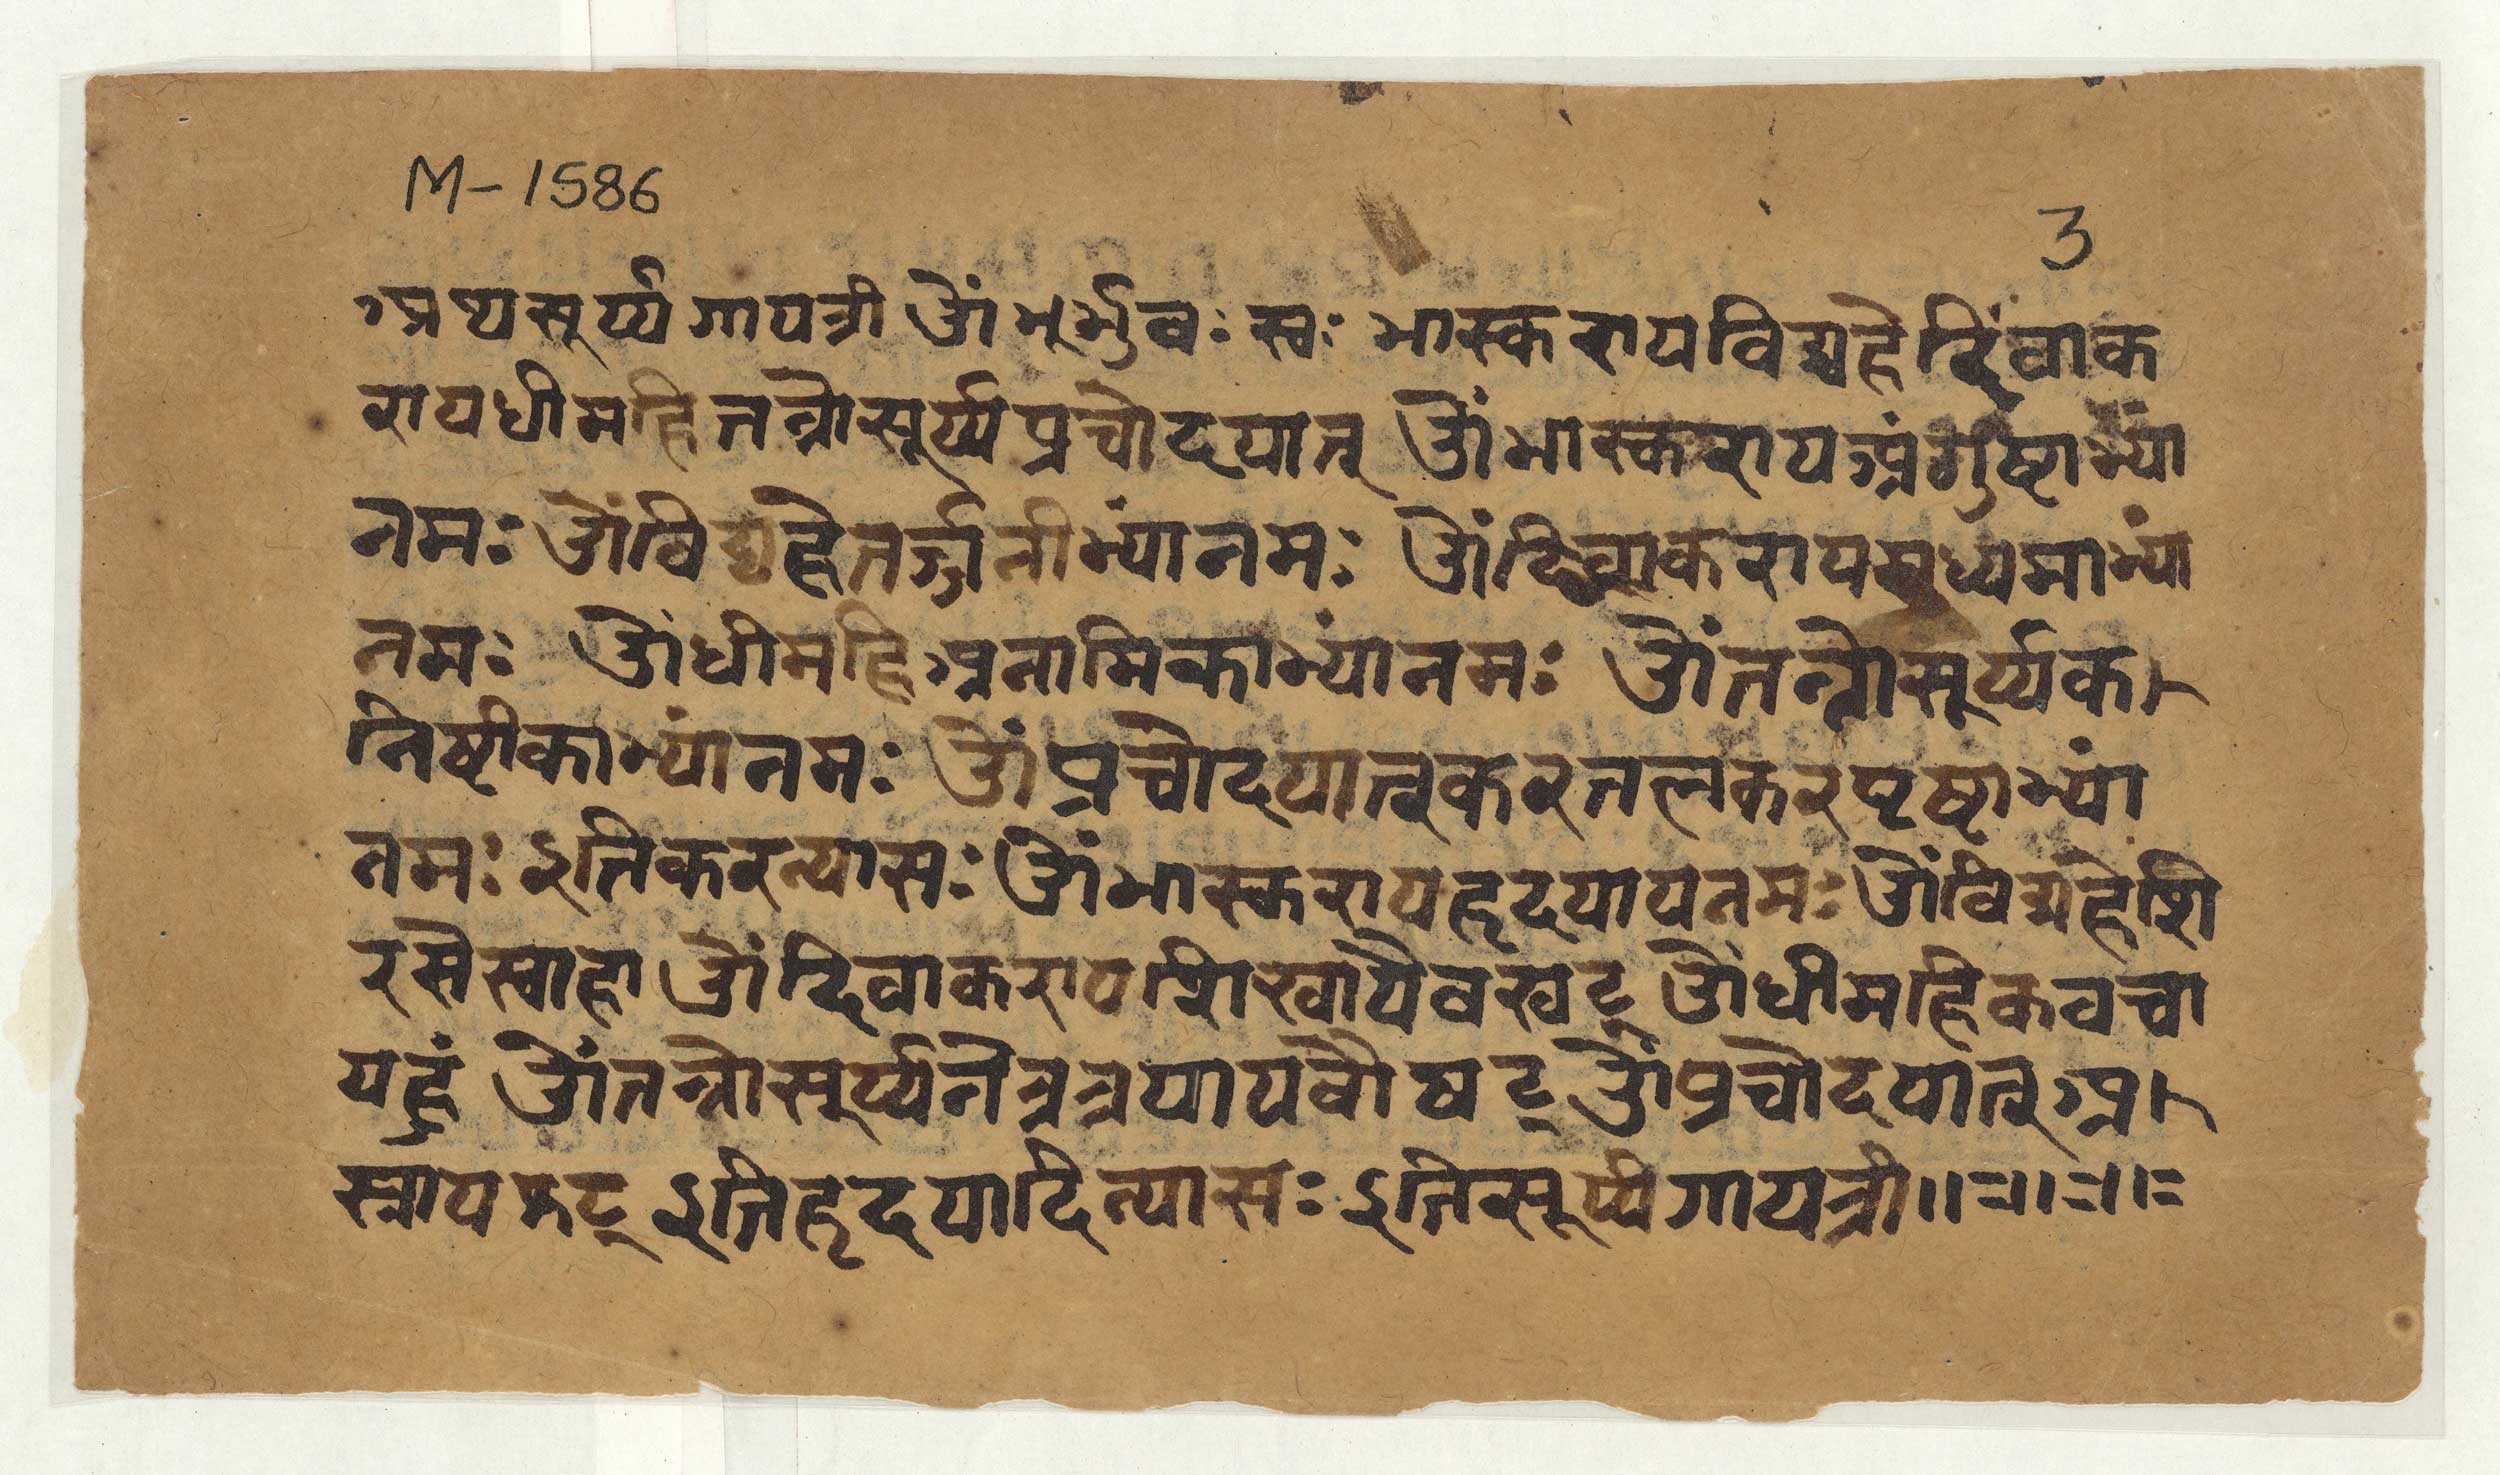 M-1586
3
अथ सूर्य्य गायत्री ओं भुर्भुवः स्वः भास्करायविद्महेदिंवाक
रायधीमहितन्नोसूर्य्यप्रचोदयात् ओंभास्करायअंगुष्ठाभ्यां
नमः ओंविद्महेतर्ज्जनीभ्यांनमः ओंदिवाकरायमध्यमाभ्यां
नमः ओंधीमहिअनामिकाभ्यांनमः ओंतन्नोसूर्य्यक
निष्ठीकाभ्यांनमः ओंप्रचोदयात्करतलकरपृष्ठाभ्यां
नमः इतिकरन्यासः ओंभास्करायहृदयायनमः ओंविद्महेशि
रसेस्वाहा ओंदिवाकरायशिखायैवखट् ओंधीमहिकवचा
यहुं ओंतन्नोसूर्य्यनेत्रत्रयायवौषट् ओंप्रचोदयात्अ
स्त्रायफट् इतिहृदयादिन्यासः इतिसूर्य्यगायत्री॥=॥=॥=